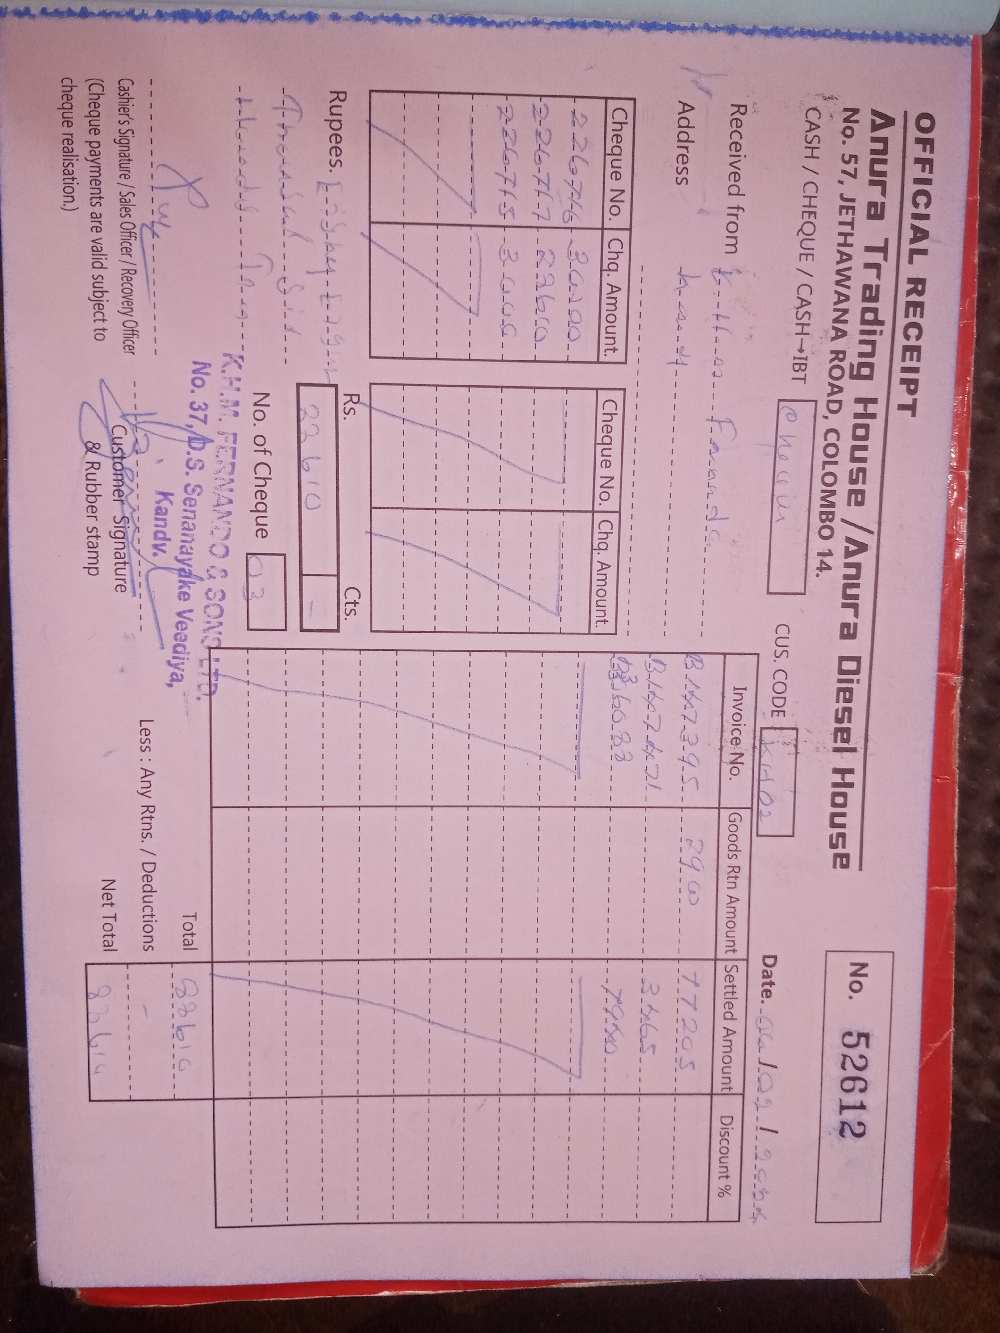 OFFICIAL RECEIPT
Anura Trading House / Anura Diesel House
No. 57, JETHAWANA ROAD, COLOMBO 14.
No. 52612
CASH / CHEQUE / CASH→IBT
CUS. CODE
Date.
Received from
Address
Cheque No. Chq. Amount. Cheque No. Chq. Amount.
226716 30000
226717 28610
226715 30000
Invoice No. Goods Rtn Amount Settled Amount Discount %
B147395 2900 77205
B147471 3465
7940
Rupees. Eighty Eight
Thousand Six
Hundred Ten
Rs. Cts.
88610 -
No. of Cheque 03
Total 88610
Less : Any Rtns. / Deductions -
Net Total 88610
K.H.M. FERNANDO & SONS LTD.
No. 37, D.S. Senanayake Veediya,
Kandy.
Cashier's Signature / Sales Officer / Recovery Officer
(Cheque payments are valid subject to
cheque realisation.)
Customer Signature
& Rubber stamp